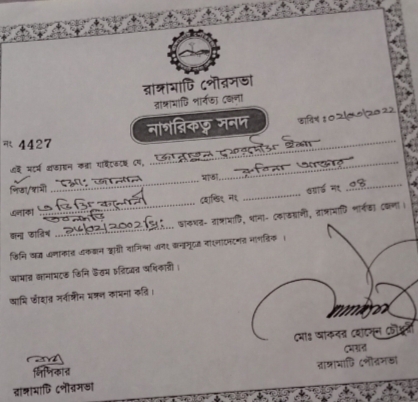 রাঙ্গামাটি পৌরসভা
রাঙ্গামাটি পার্বত্য জেলা
নাগরিকত্ব সনদ
নং 4427
তারিখ :
এই মর্মে প্রত্যয়ন করা যাইতেছে যে, জান্নাতুল
পিতা/স্বামী মো: জালাল মাতা রুবিনা আক্তার
এলাকা হোল্ডিং নং ওয়ার্ড নং ০৪
জন্ম তারিখ ডাকঘর- রাঙ্গামাটি, থানা- কোতয়ালী, রাঙ্গামাটি পার্বত্য জেলা।
তিনি অত্র এলাকার একজন স্থায়ী বাসিন্দা এবং জন্মসূত্রে বাংলাদেশের নাগরিক ।
আমার জানামতে তিনি উত্তম চরিত্রের অধিকারী।
আমি তাঁহার সর্বাঙ্গীন মঙ্গল কামনা করি।
মোঃ আকবর হোসেন চৌধুরী
মেয়র
রাঙ্গামাটি পৌরসভা
লিপিকার
রাঙ্গামাটি পৌরসভা